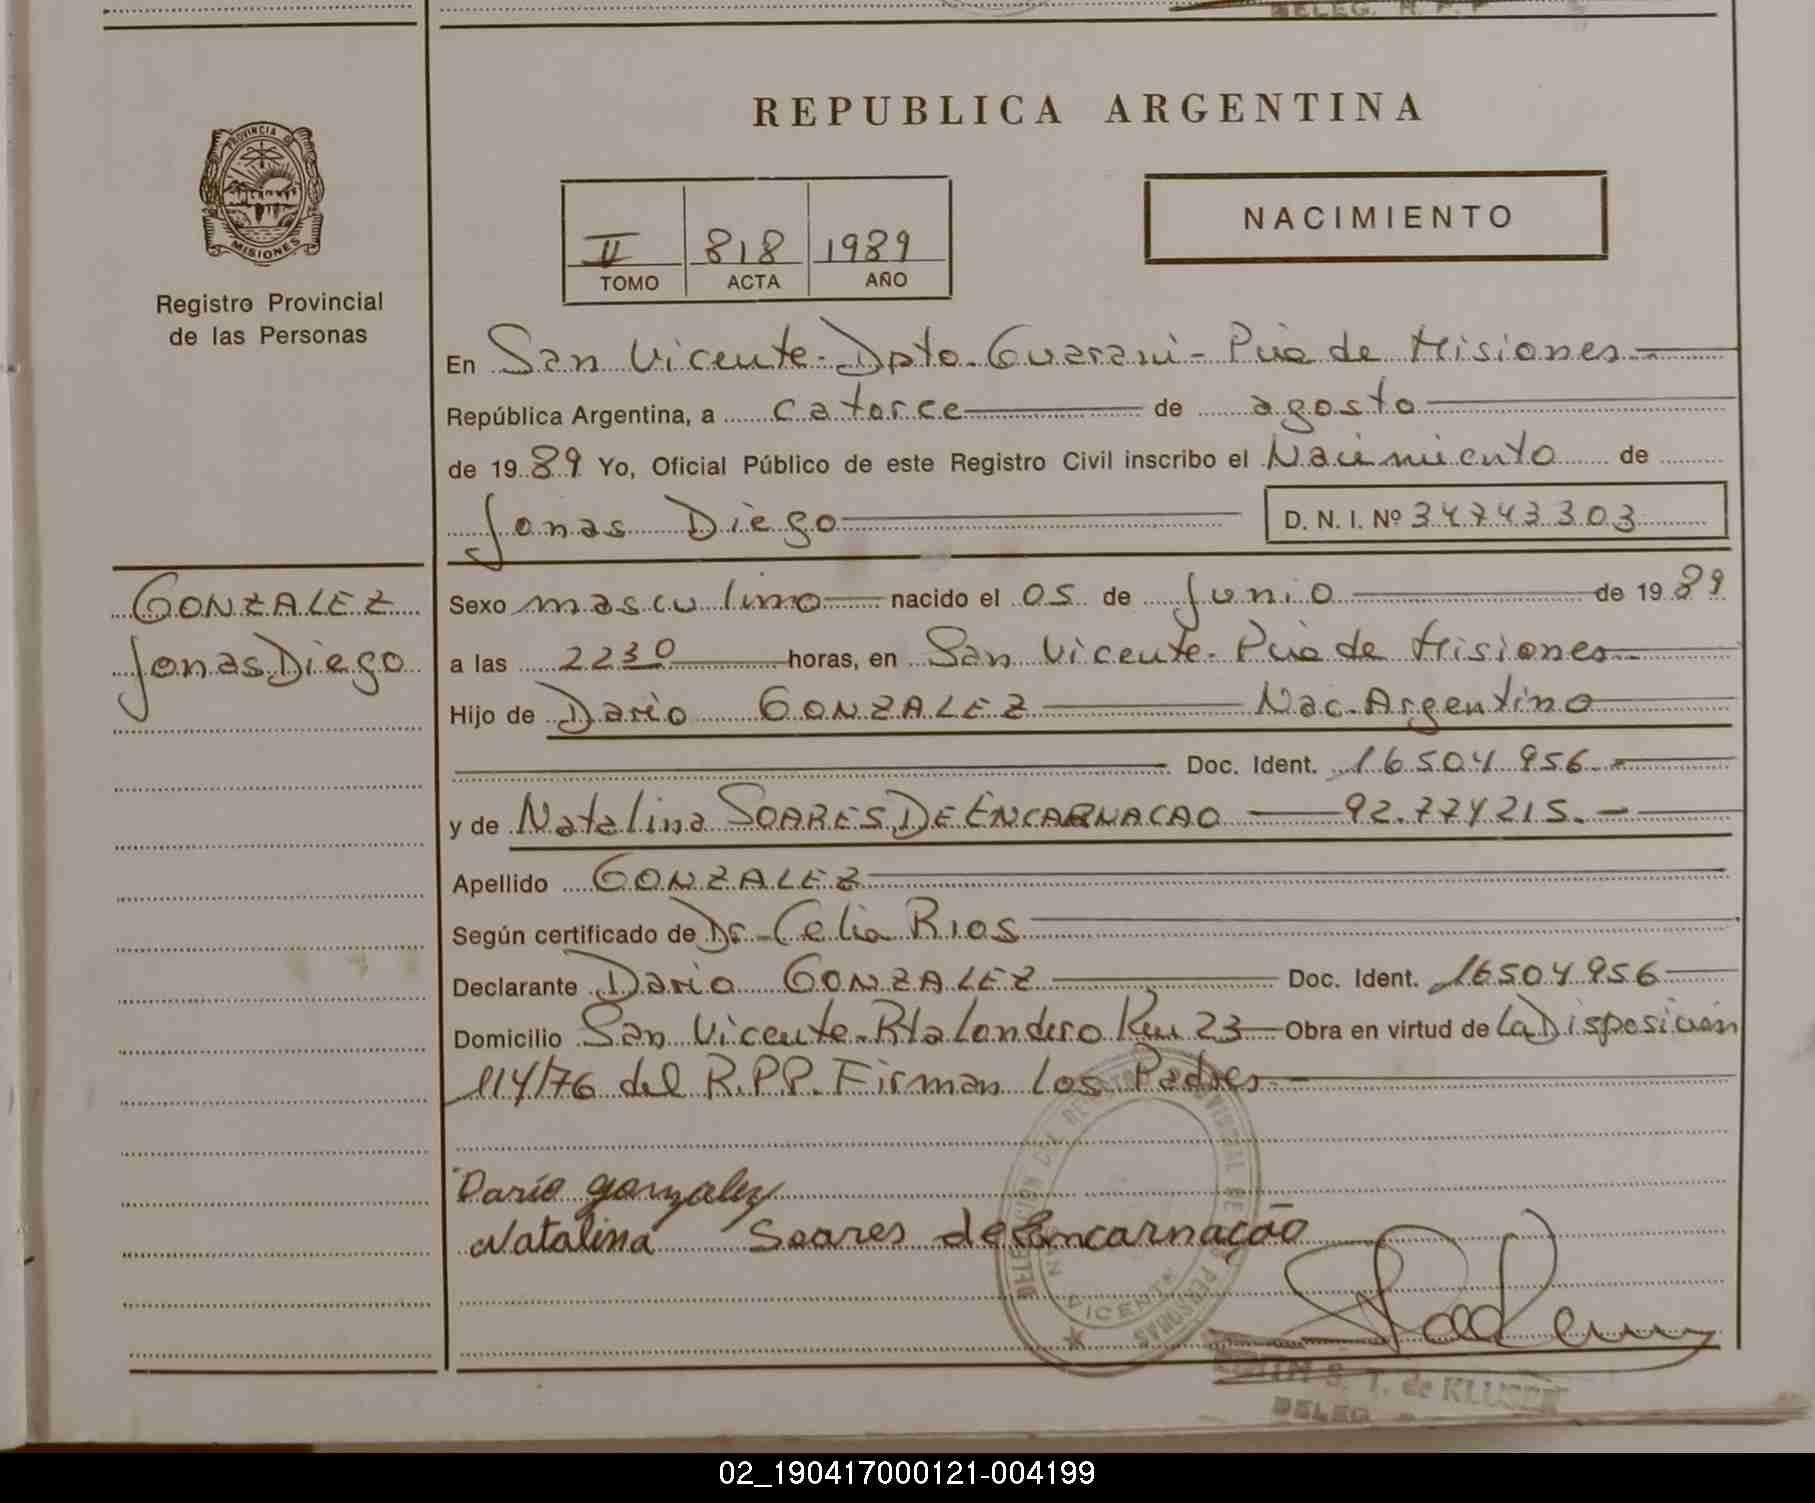 DELEG. R. P. P
PROVINCIA DE
MISIONES
Registro Provincial
de las Personas
REPUBLICA ARGENTINA
II 818 1989
TOMO ACTA AÑO
NACIMIENTO
En San Vicente - Dpto. Guarani - Pcia de Misiones
República Argentina, a catorce de agosto
de 1989 Yo, Oficial Público de este Registro Civil inscribo el Nacimiento de
Jonas Diego D. N. I. Nº 34743303
GONZALEZ
Jonas Diego
Sexo masculino nacido el 05 de Junio de 1989
a las 2230 horas, en San Vicente - Pcia de Misiones
Hijo de Dario GONZALEZ Nac. Argentino
Doc. Ident. 16504956.-
y de Natalina SOARES DE ENCARNACAO 92.774215.-
Apellido GONZALEZ
Según certificado de Dr. Celia Rios
Declarante Dario GONZALEZ Doc. Ident. 16504956
Domicilio San Vicente - Rta Londero Km 23 Obra en virtud de La Disposicion
114/76 del R.P.P. Firman Los Padres -
Darío gonzalez
Natalina Soares de Encarnação
DELEGACION REGISTRO PROVINCIAL DE LAS PERSONAS
VICENTE
S. T. de KLUSER
DELEG.
02_190417000121-004199